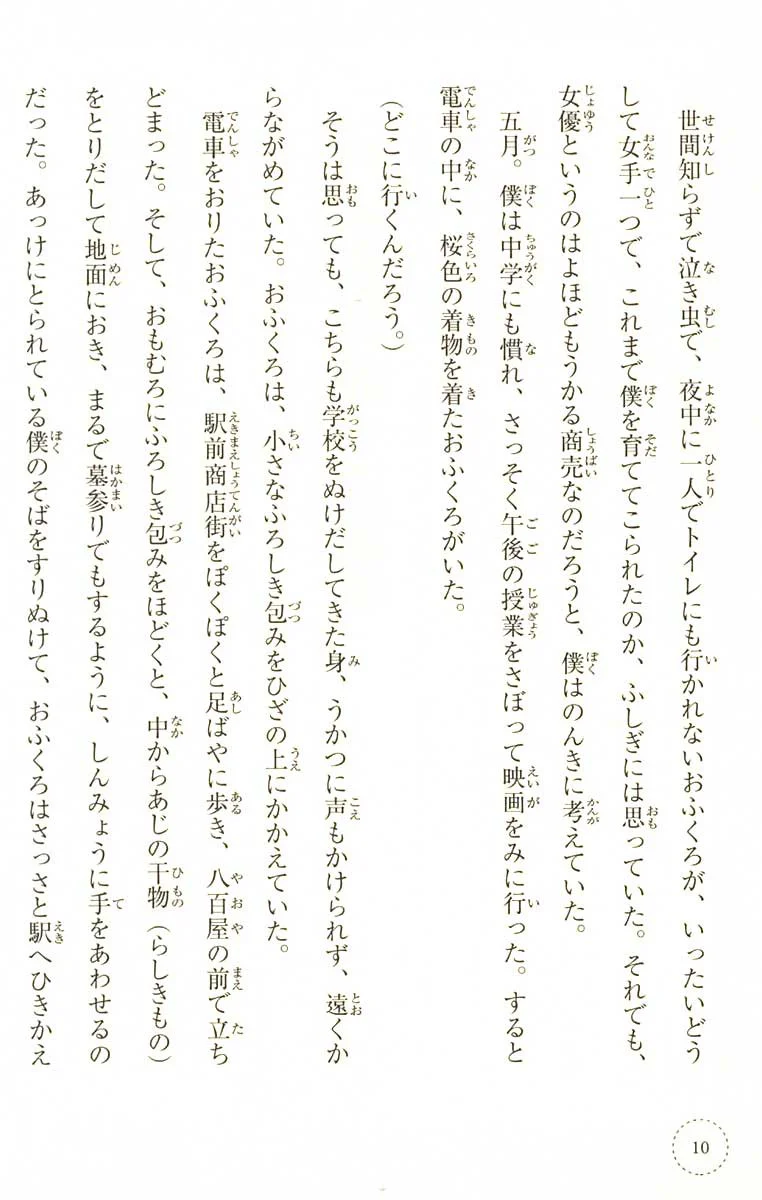 世間知らずで泣き虫で、夜中に一人でトイレにも行かれないおふくろが、いったいどう
して女手一つで、これまで僕を育ててこられたのか、ふしぎには思っていた。それでも、
女優というのはよほどもうかる商売なのだろうと、僕はのんきに考えていた。
五月。僕は中学にも慣れ、さっそく午後の授業をさぼって映画をみに行った。すると
電車の中に、桜色の着物を着たおふくろがいた。
(どこに行くんだろう。)
そうは思っても、こちらも学校をぬけだしてきた身、うかつに声もかけられず、遠くか
らながめていた。おふくろは、小さなふろしき包みをひざの上にかかえていた。
電車をおりたおふくろは、駅前商店街をぽくぽくと足ばやに歩き、八百屋の前で立ち
どまった。そして、おもむろにふろしき包みをほどくと、中からあじの干物(らしきもの)
をとりだして地面におき、まるで墓参りでもするように、しんみょうに手をあわせるの
だった。あっけにとられている僕のそばをすりぬけて、おふくろはさっさと駅へひきかえ
10